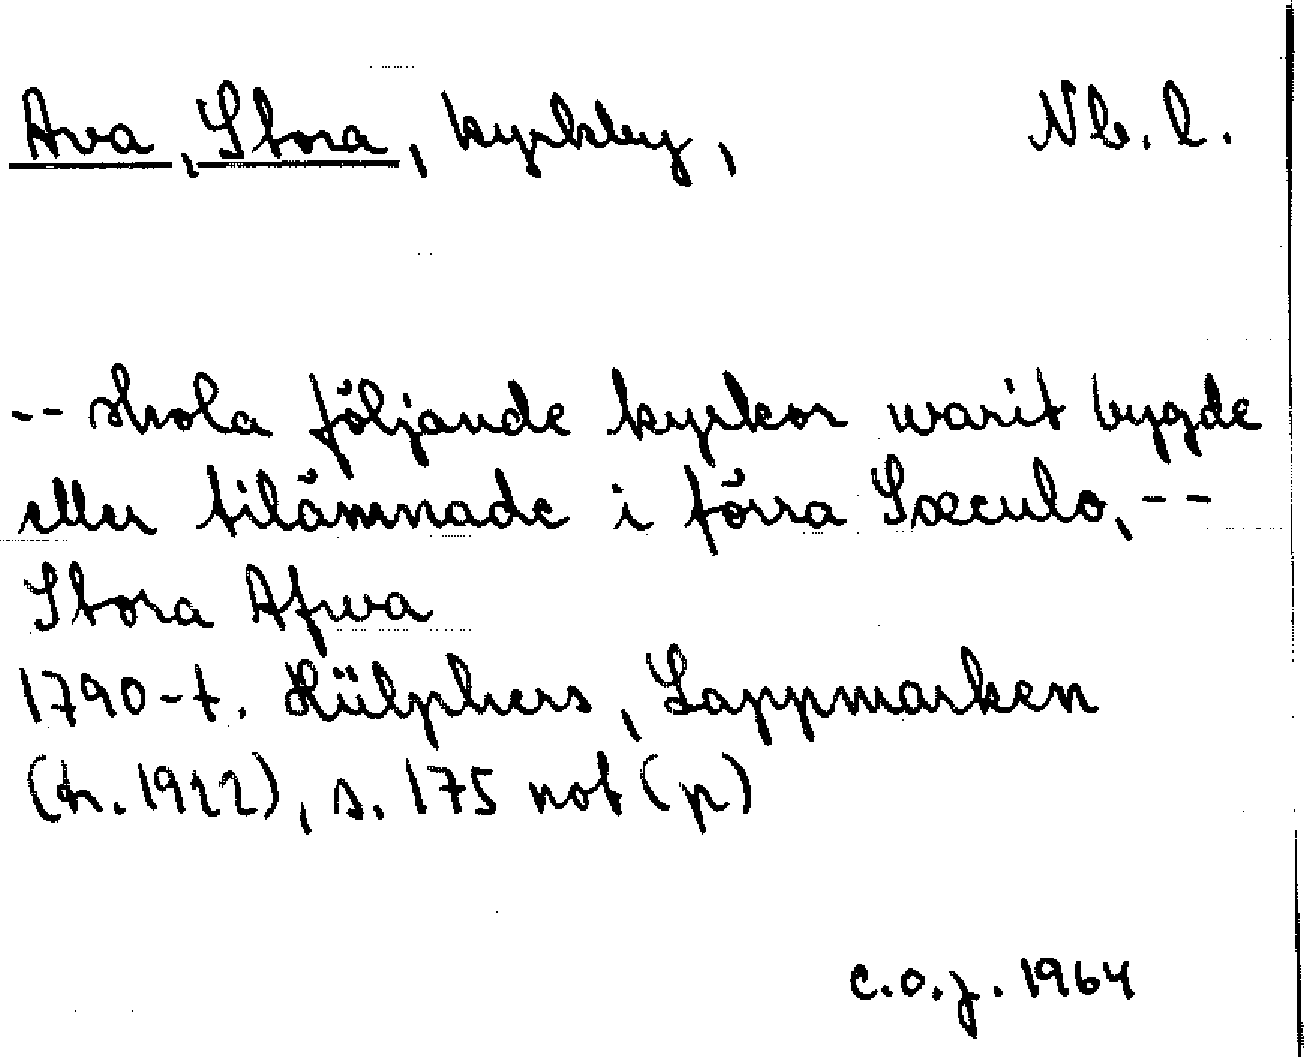 Ava, Stora, kyrkby, Nb. l.
-- skola följande kyrkor warit bygde
eller tilämnade i förra Sæculo, --
Stora Afwa
1790-t. Hülphers, Lappmarken
(tr. 1922), s. 175 not (p)
C.O.J. 1964